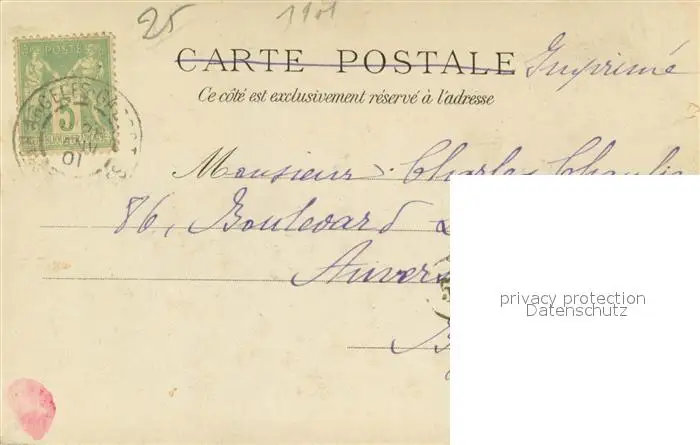 25
1901
POSTE
5
CARTE POSTALE Imprimé
Ce côté est exclusivement réservé à l'adresse
JANV
01
Monsieur Charles
86, Boulevard
Anvers
privacy protection
Datenschutz